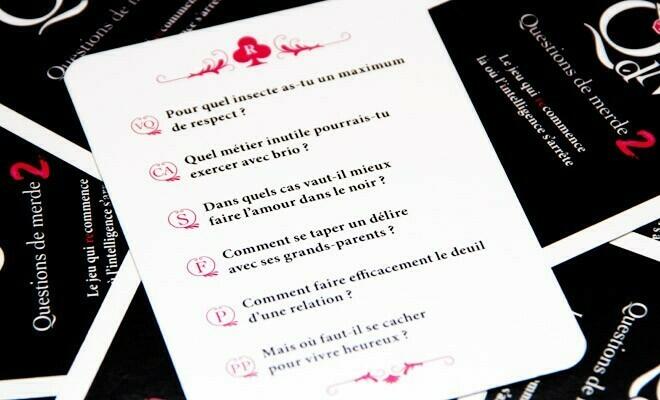 R
VQ Pour quel insecte as-tu un maximum
de respect ?
CA Quel métier inutile pourrais-tu
exercer avec brio ?
S Dans quels cas vaut-il mieux
faire l'amour dans le noir ?
F Comment se taper un délire
avec ses grands-parents ?
P Comment faire efficacement le deuil
d'une relation ?
PP Mais où faut-il se cacher
pour vivre heureux ?
Questions de m
Questions de merde 2
Le jeu qui recommence
là où l'intelligence s'arrête
Questions de merde 2
Le jeu qui recommence
où l'intelligence s'arr
Questions de